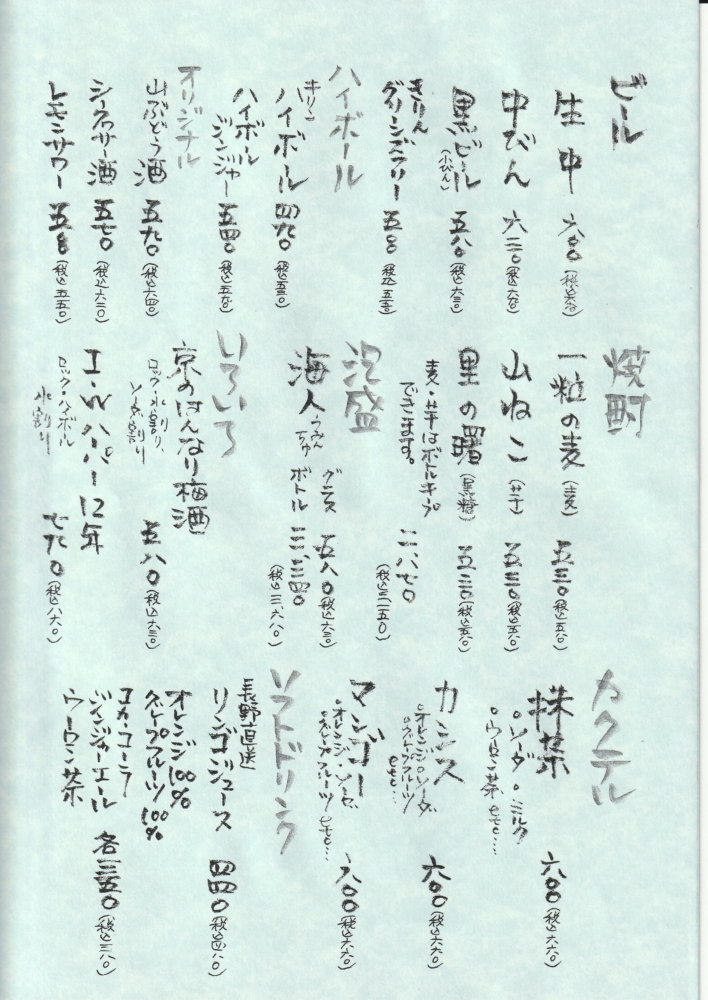 ビール
生中 六〇〇 (税込六六〇)
中びん 六二〇 (税込六八〇)
黒ビール (小びん) 五八〇 (税込六三〇)
きりん
グリーンズフリー 五〇〇 (税込五五〇)
ハイボール
キリン
ハイボール 四九〇 (税込五三〇)
ハイボール
ジンジャー 五四〇 (税込五九〇)
オリジナル
山ぶどう酒 五九〇 (税込六四〇)
シークワサー酒 五七〇 (税込六二〇)
レモンサワー 五〇〇 (税込五五〇)
焼酎
一粒の麦 (麦) 五三〇 (税込五八〇)
山ねこ (芋) 五三〇 (税込五八〇)
里の曙 (黒糖) 五三〇 (税込五八〇)
麦・芋はボトルキープ
できます。 二、八七〇 (税込三一五〇)
泡盛
海人 うみんちゅ
グラス 五八〇 (税込六三〇)
ボトル 三、三四〇 (税込三、六八〇)
いろいろ
京のはんなり梅酒 五八〇 (税込六三〇)
ロック・水割り、
ソーダ割り
I・W・ハーパー12年 七九〇 (税込八六〇)
ロック・ハイボール
水割り
カクテル
抹茶 六〇〇 (税込六六〇)
。ソーダ 。ミルク
。ウーロン茶 etc…
カシス 六〇〇 (税込六六〇)
。オレンジ 。ソーダ
。グレープフルーツ etc…
マンゴー 六〇〇 (税込六六〇)
。オレンジ・ソーダ
。グレープフルーツ etc…
ソフトドリンク
長野直送
リンゴジュース 四四〇 (税込四八〇)
オレンジ100%
グレープフルーツ100%
コカ・コーラ
ジンジャーエール 各三五〇 (税込三八〇)
ウーロン茶